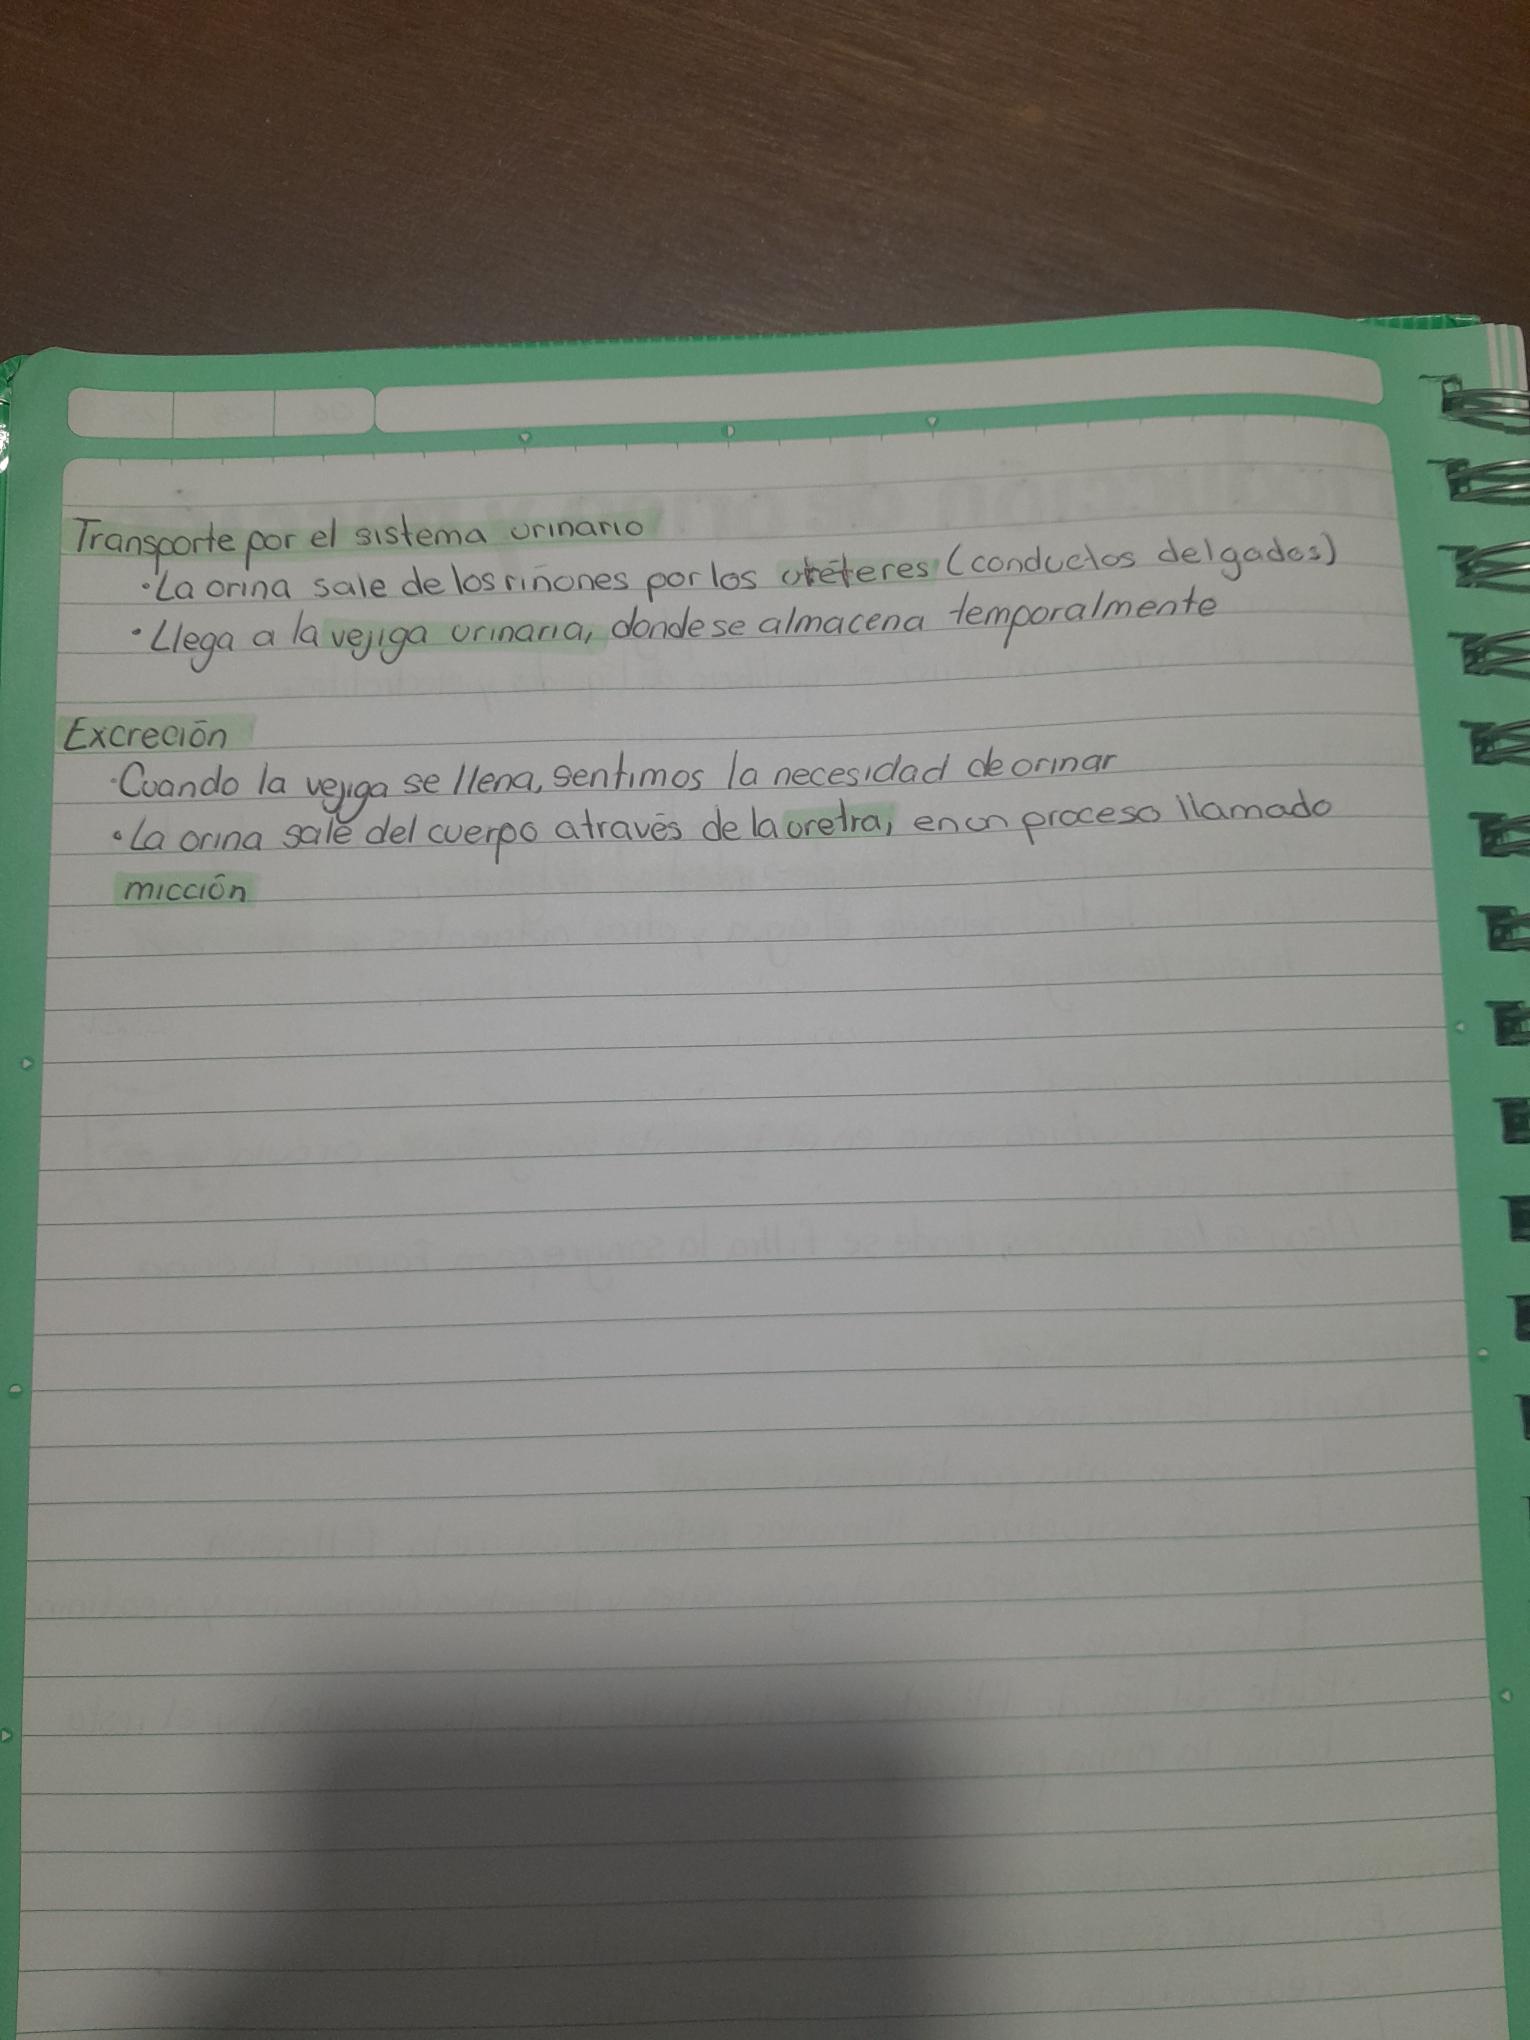 Transporte por el sistema urinario
• La orina sale de los riñones por los uréteres (conductos delgados)
• Llega a la vejiga urinaria, donde se almacena temporalmente
Excreción
• Cuando la vejiga se llena, sentimos la necesidad de orinar
• La orina sale del cuerpo através de la uretra, en un proceso llamado
micción